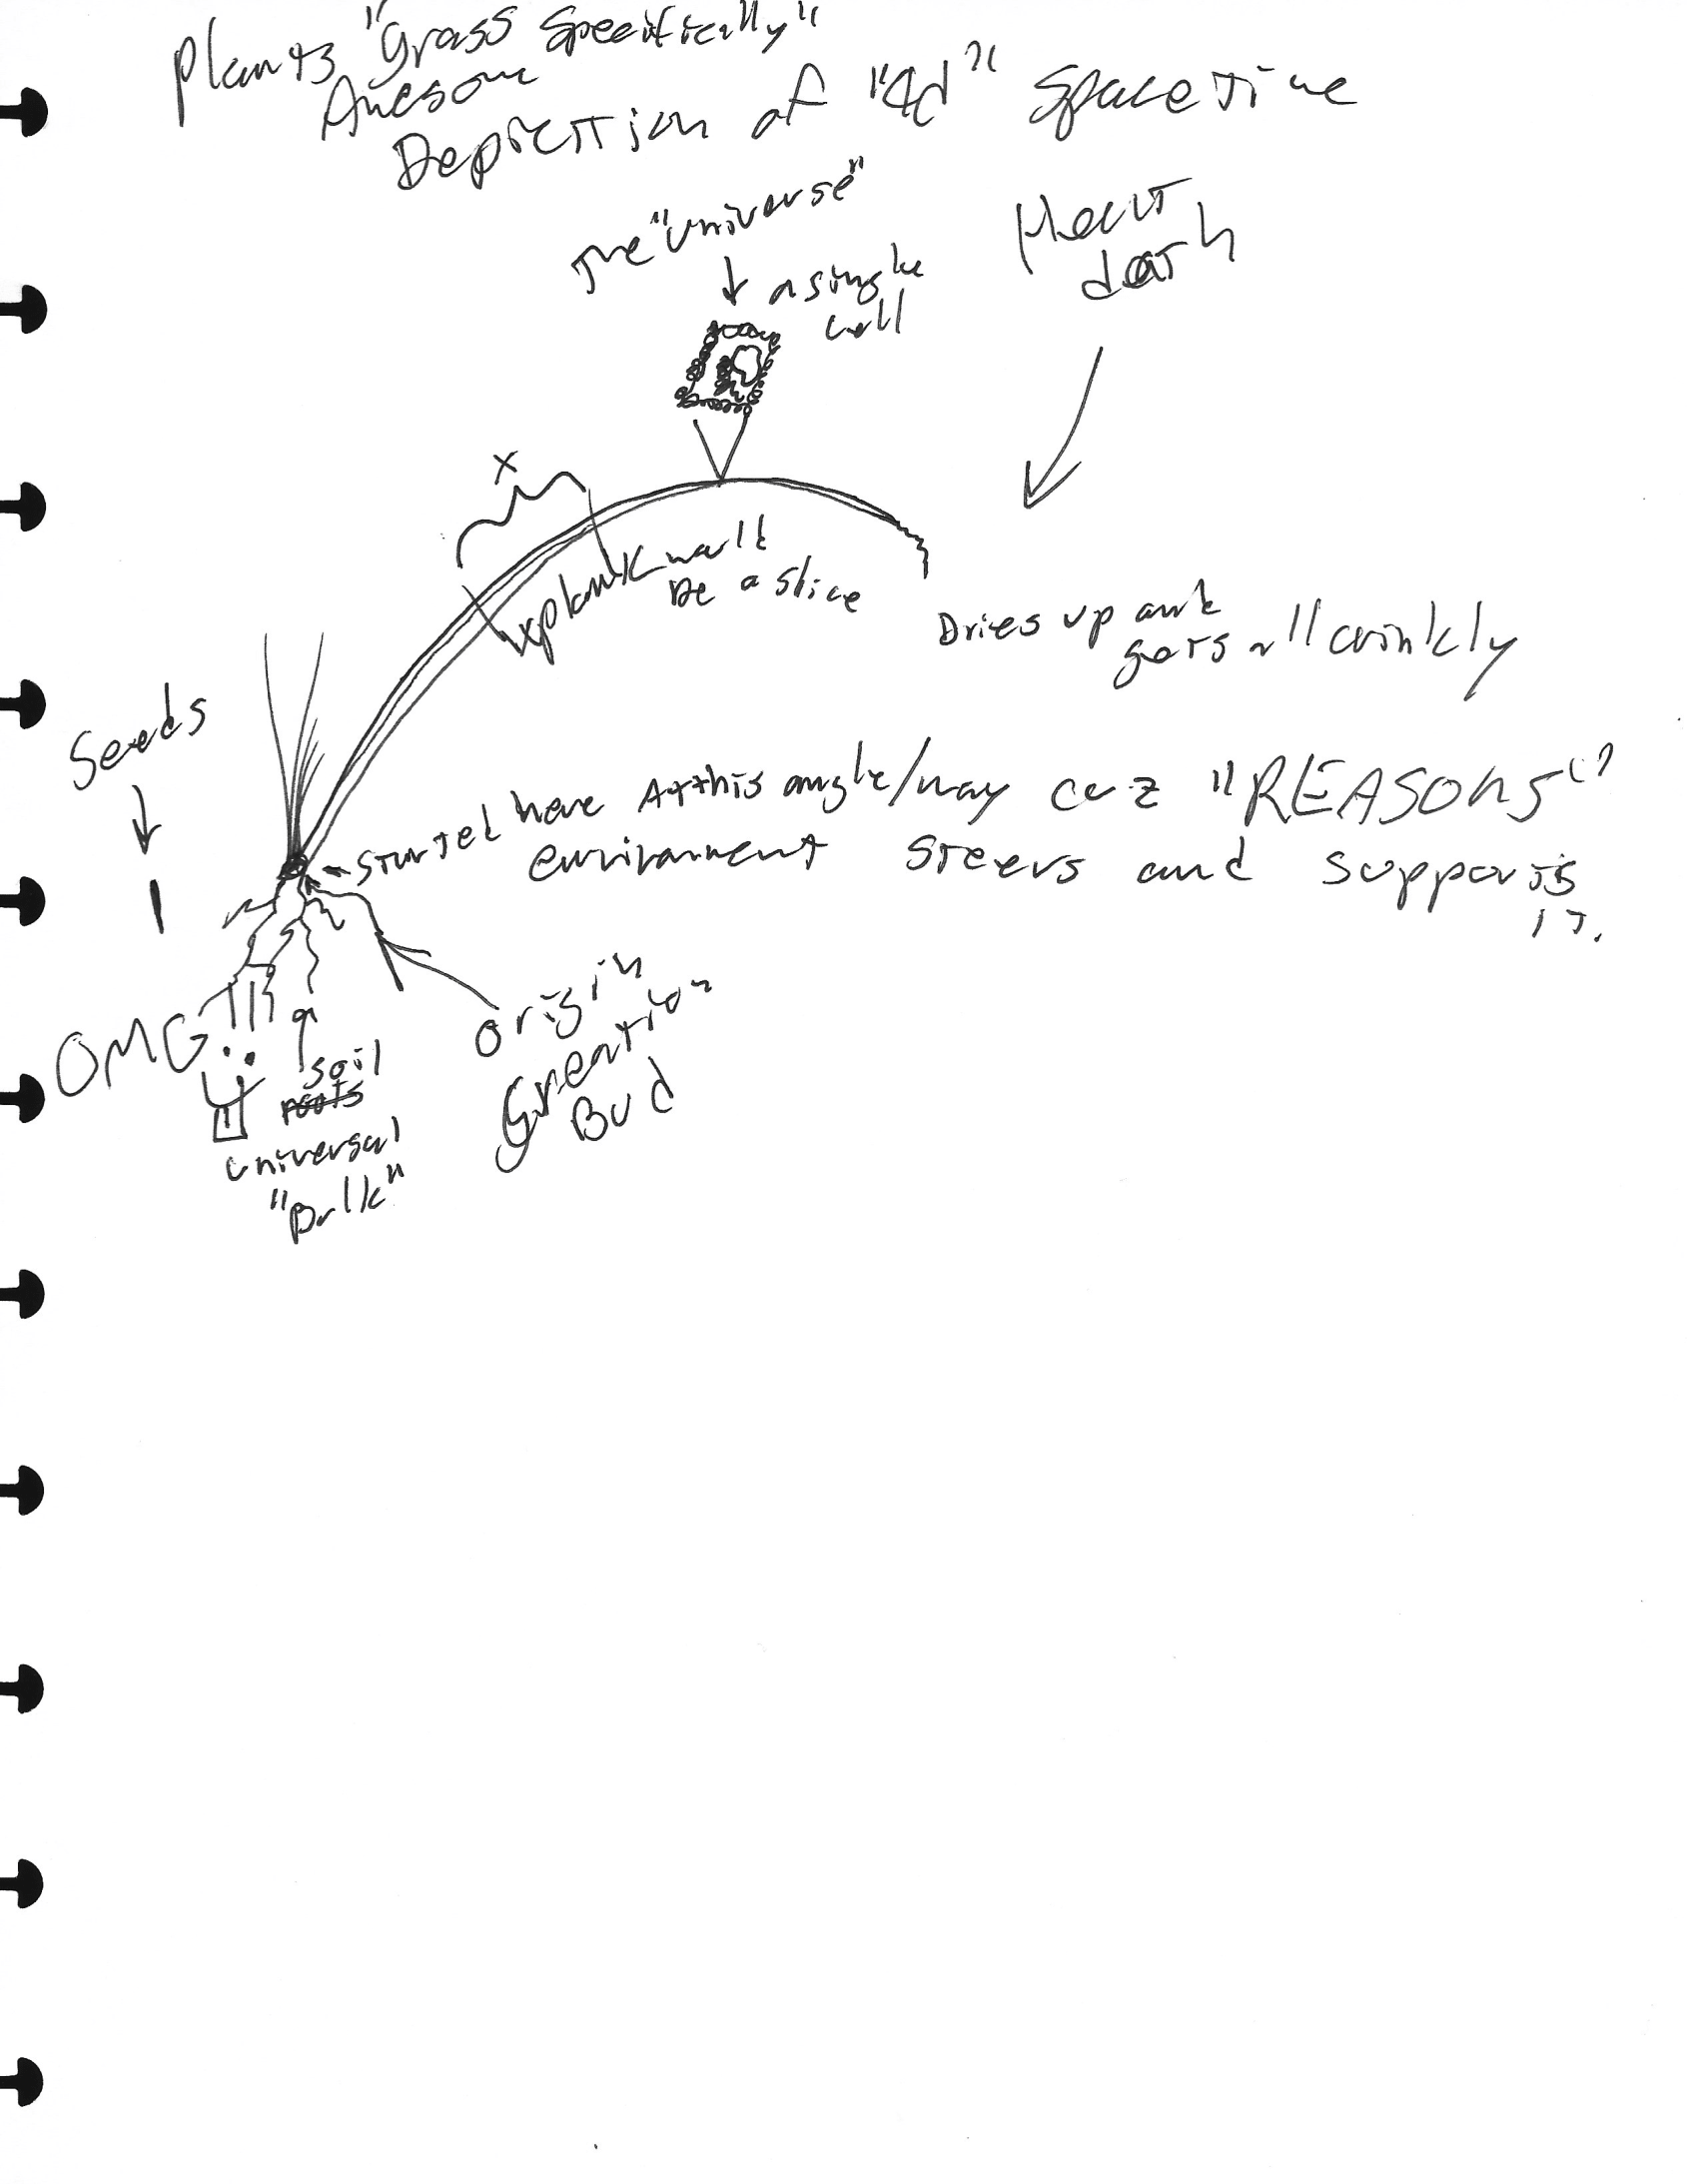 Plants "Grass Specifically"
Awesome
Depiction of "4d" Spacetime
The "universe"
a single
cell
Heat
death
x
x plank wall
be a slice
Dries up and
gets all crinkly
Seeds
Started here At this angle/way cuz "REASONS"
environment steers and supports
it.
OMG!!!
soil
roots
universal
"Bulk"
origin
Creation
Bud